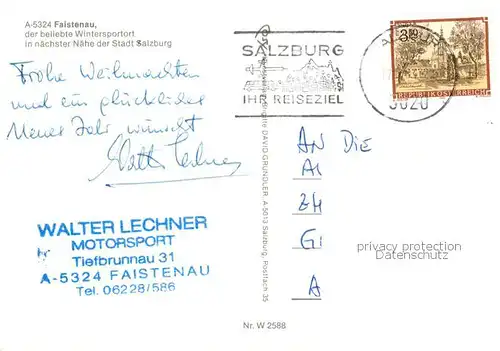 A-5324 Faistenau,
der beliebte Wintersportort
in nächster Nähe der Stadt Salzburg
Frohe Weihnachten
und ein glückliches
Neues Jahr wünscht
Walter Lechner
WALTER LECHNER
MOTORSPORT
Tiefbrunnau 31
A-5324 FAISTENAU
Tel. 06228/586
SALZBURG
IHR REISEZIEL
3.50
REPUBLIK ÖSTERREICH
5020
DAVID-GRÜNDLER, A-5013 Salzburg, Postfach 35
AN DIE
privacy protection
VeryOldImage.com
Nr. W 2588